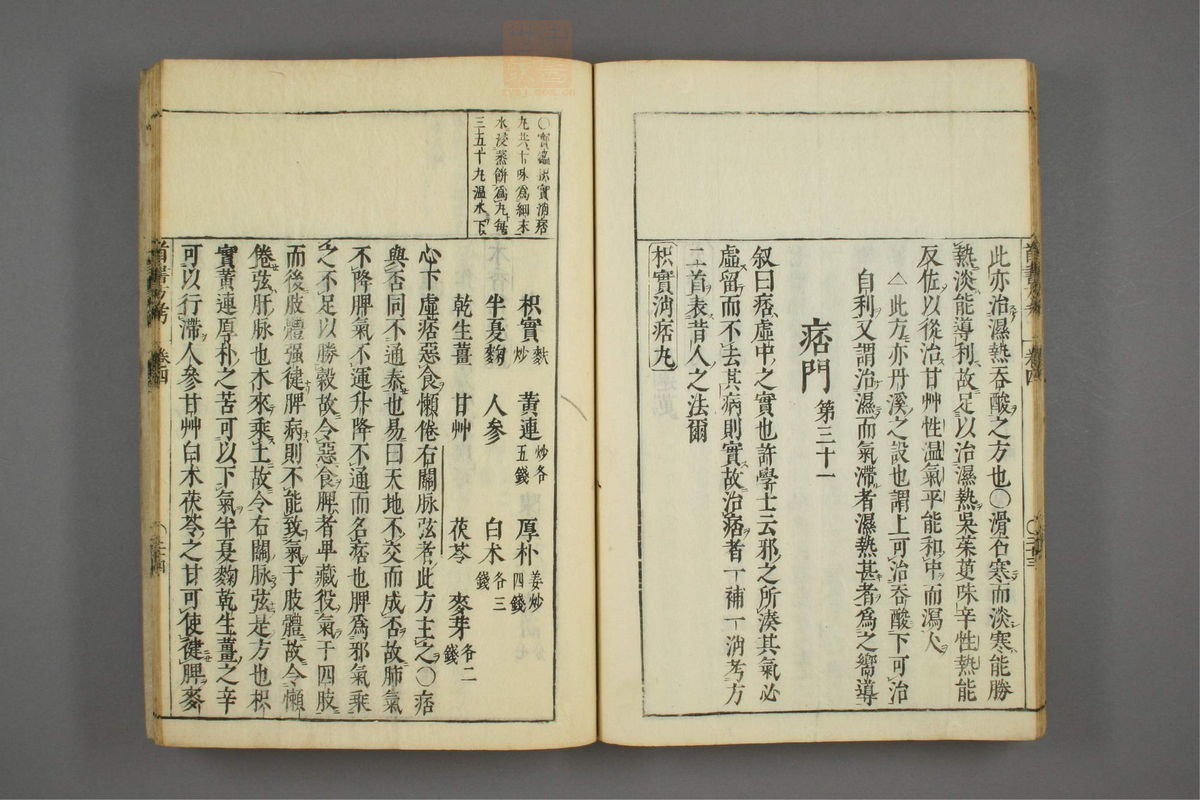 此亦治濕熱吞酸之方也○滑石寒而淡寒能勝
熱淡能導利故足以治濕熱吳茱萸味辛性熱能
反佐以從治甘艸性温氣平能和中而瀉火
△此方亦丹溪之設也謂上可治吞酸下可治
自利又謂治濕而氣滯者濕熱甚者爲之嚮導
痞門第三十一
叙曰痞虛中之實也許學士云邪之所湊其氣必
虛留而不去其病則實故治痞者一補一消考方
二首表昔人之法爾
枳實消痞丸
○寶鑑枳實消痞
丸共十味爲細末
水浸蒸餅爲丸每
三五十九温水下
枳實麩炒 黃連炒各五錢 厚朴姜炒四錢
半夏麴 人參 白朮各三錢
乾生薑 甘艸 茯苓 麥芽各二錢
心下虛痞惡食懶倦右關脉弦者此方主之○痞
與否同不通泰也易曰天地不交而成否故肺氣
不降脾氣不運升降不通而名痞也脾爲邪氣乘
之不足以勝穀故令惡食脾者卑藏役氣于四肢
而後肢體强健脾病則不能致氣于肢體故令懶
倦弦肝脉也木來乘土故令右關脉弦是方也枳
實黃連厚朴之苦可以下氣半夏麴乾生薑之辛
可以行滯人參甘艸白朮茯苓之甘可使健脾麥
卷四
卷四